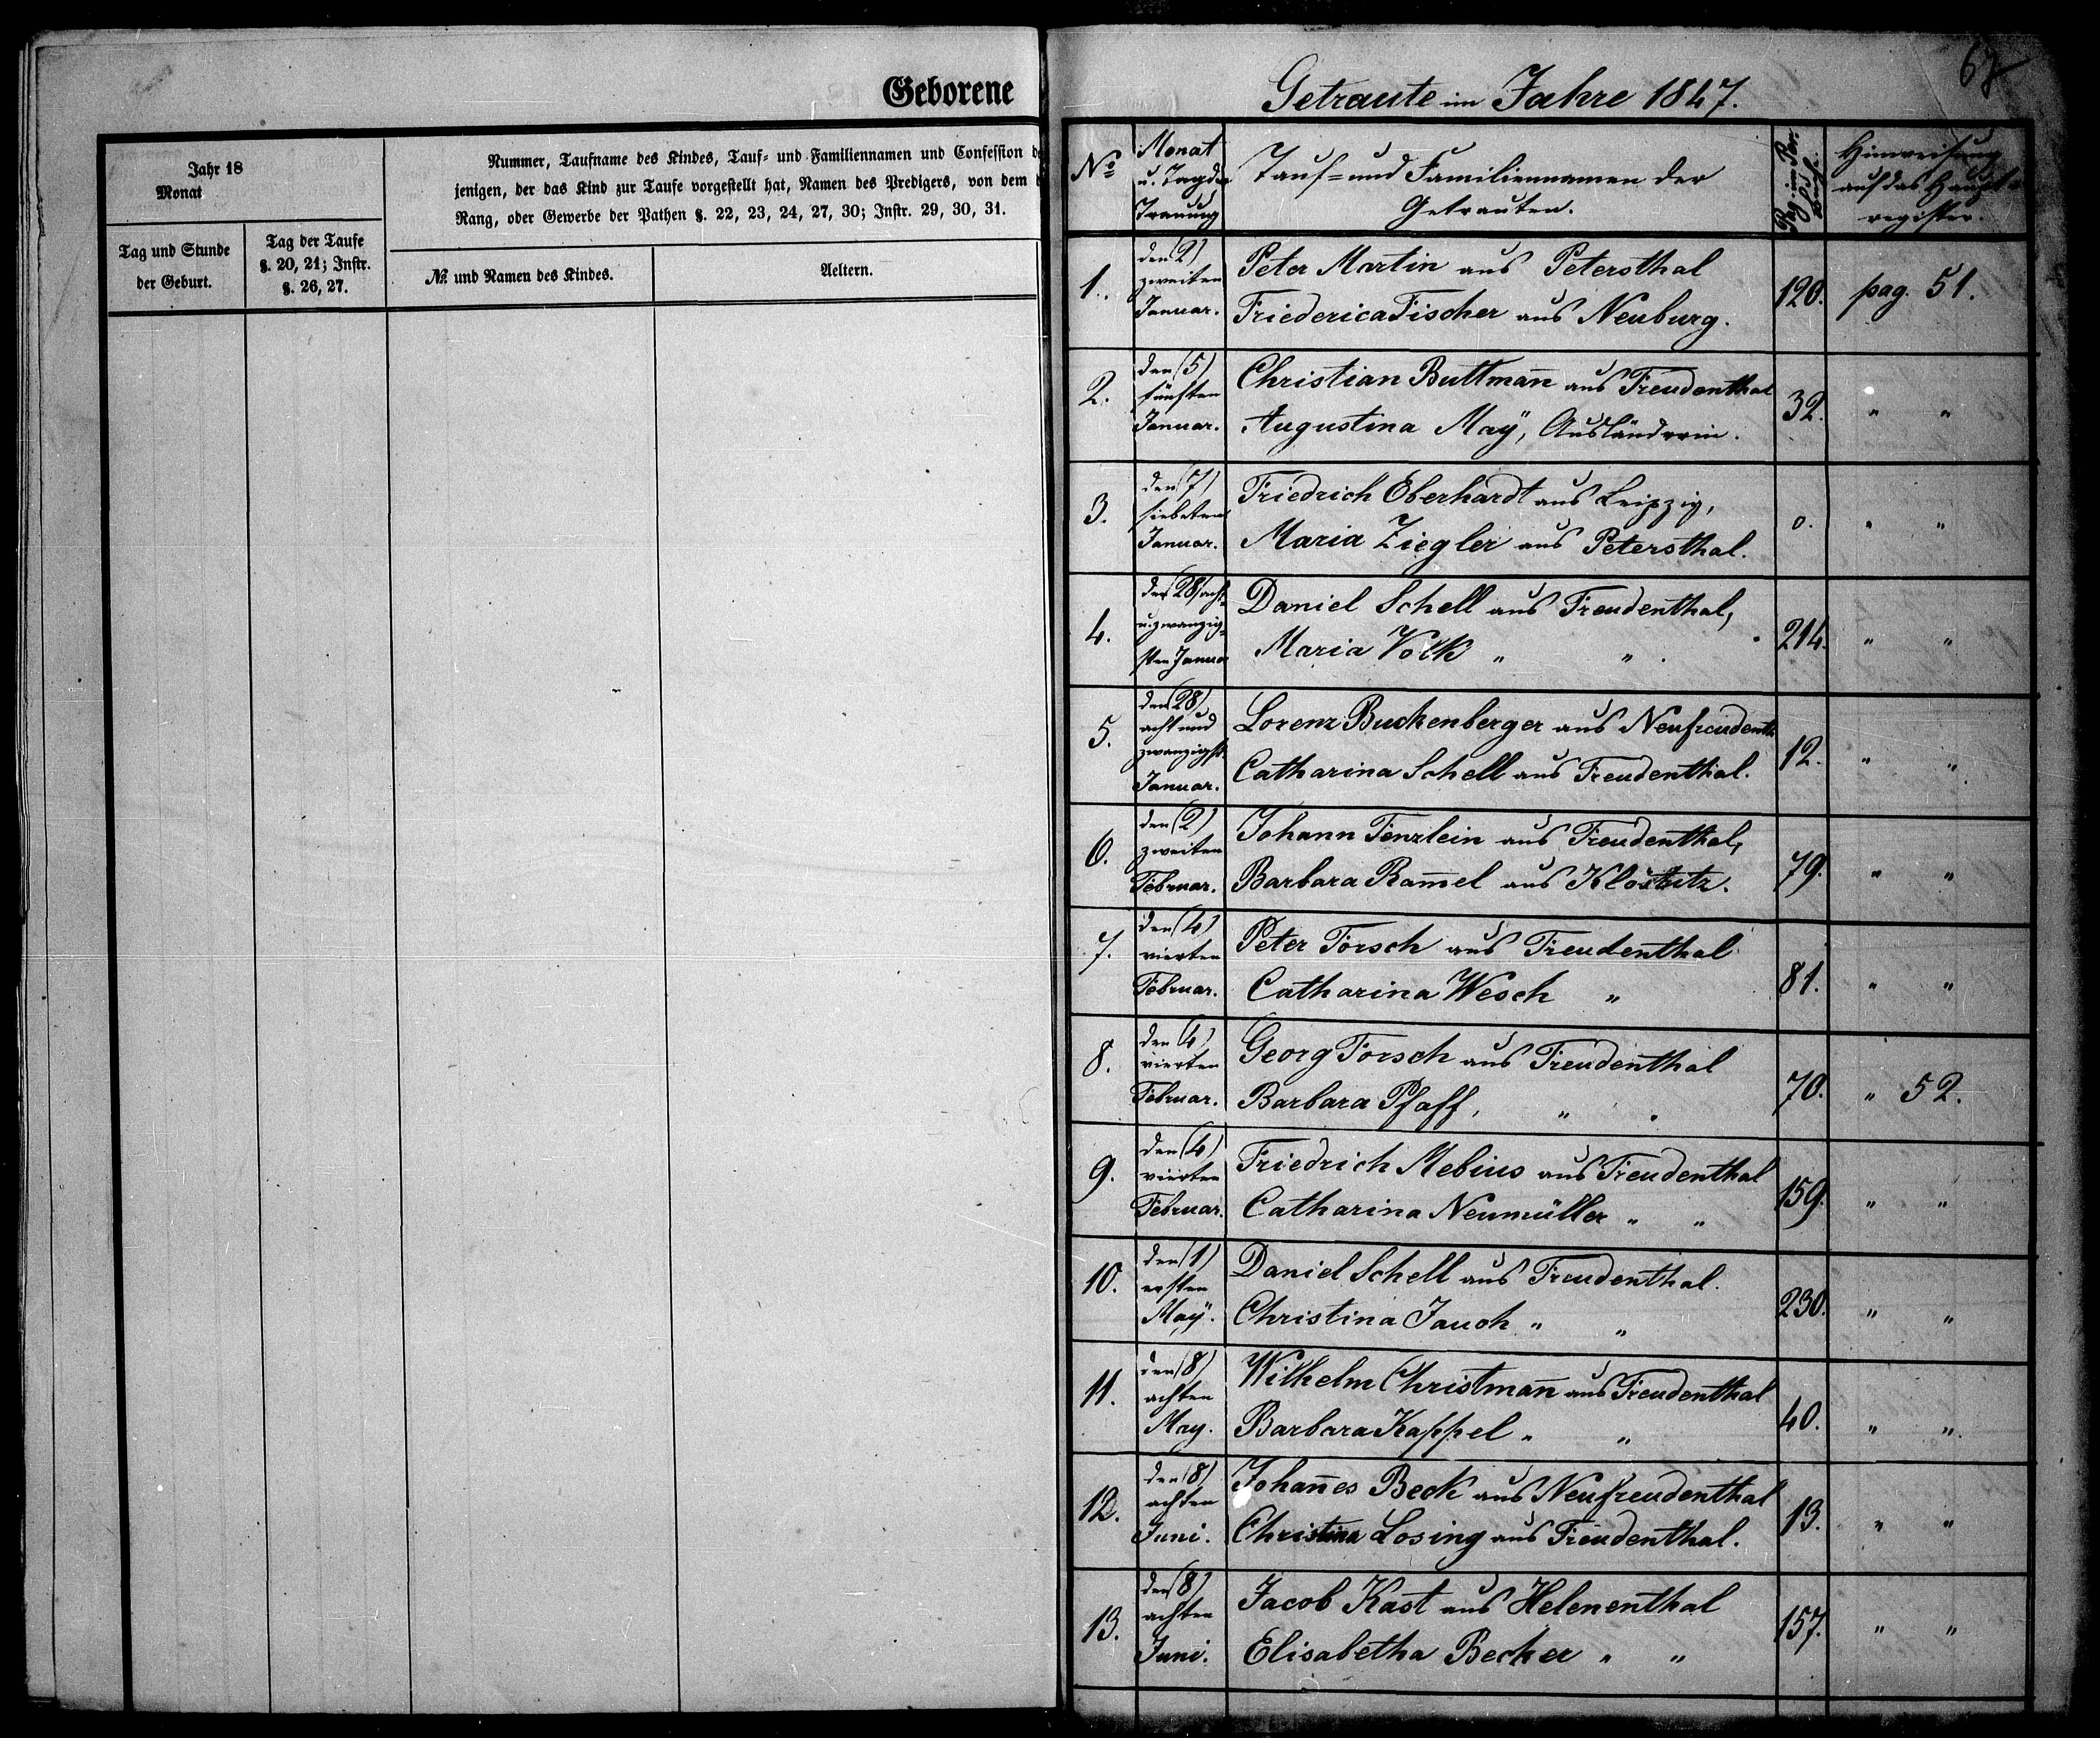 Geborene
Jahr 18
Monat
Nummer, Taufname des Kindes, Tauf- und Familiennamen und Confession
jenigen, der das Kind zur Taufe vorgestellt hat, Namen des Predigers, von dem
Rang, oder Gewerbe der Pathen §. 22, 23, 24, 27, 30; Instr. 29, 30, 31.
Tag und Stunde
der Geburt.
Tag der Taufe
§. 20, 21; Instr.
§. 26, 27.
№ und Namen des Kindes.
Aeltern.
Getraute im Jahre 1847.
№
Monat
u. Tag der
Trauung
Tauf= und Familiennamen der
Getrauten.
Pag. im Per.
Hinweisung
auf das Haupt=
register.
1.
den (2)
zweiten
Januar.
Peter Martin aus Petersthal
Friederica Fischer aus Neuburg.
120.
pag. 51.
2.
den (5)
fünften
Januar.
Christian Buttman̄ aus Freudenthal
Augustina Maÿ, Ausländerin.
32.
" "
3.
den (7)
siebeten
Januar.
Friedrich Eberhardt aus Leipzig,
Maria Ziegler aus Petersthal.
0.
" "
4.
den (28) acht=
u. zwanzig=
sten Januar
Daniel Schell aus Freudenthal,
Maria Volk " " .
214.
" "
5.
den (28)
acht und
zwanzigst.
Januar.
Lorenz Buckenberger aus Neufreudenth.
Catharina Schell aus Freudenthal.
12.
" "
6.
den (2)
zweiten
Februar.
Johann Fenzlein aus Freudenthal,
Barbara Ram̄el aus Klöstitz.
79.
" "
7.
den (4)
vierten
Februar.
Peter Försch aus Freudenthal
Catharina Wesch "
81.
" "
8.
den (4)
vierten
Februar.
Georg Försch aus Freudenthal
Barbara Pfaff, " "
70.
" 52.
9.
den (4)
vierten
Februar.
Friedrich Mebius aus Freudenthal
Catharina Neumüller " "
159.
" "
10.
den (1)
ersten
Maÿ.
Daniel Schell aus Freudenthal.
Christina Jauch " "
230.
" "
11.
den (8)
achten
May.
Wilhelm Christman̄ aus Freudenthal
Barbara Kappel " "
40.
" "
12.
den (8)
achten
Juni.
Johan̄es Beck aus Neufreudenthal
Christina Losing aus Freudenthal.
13.
" "
13.
den (8)
achten
Juni.
Jacob Kast aus Helenenthal
Elisabetha Becker " "
157.
" "